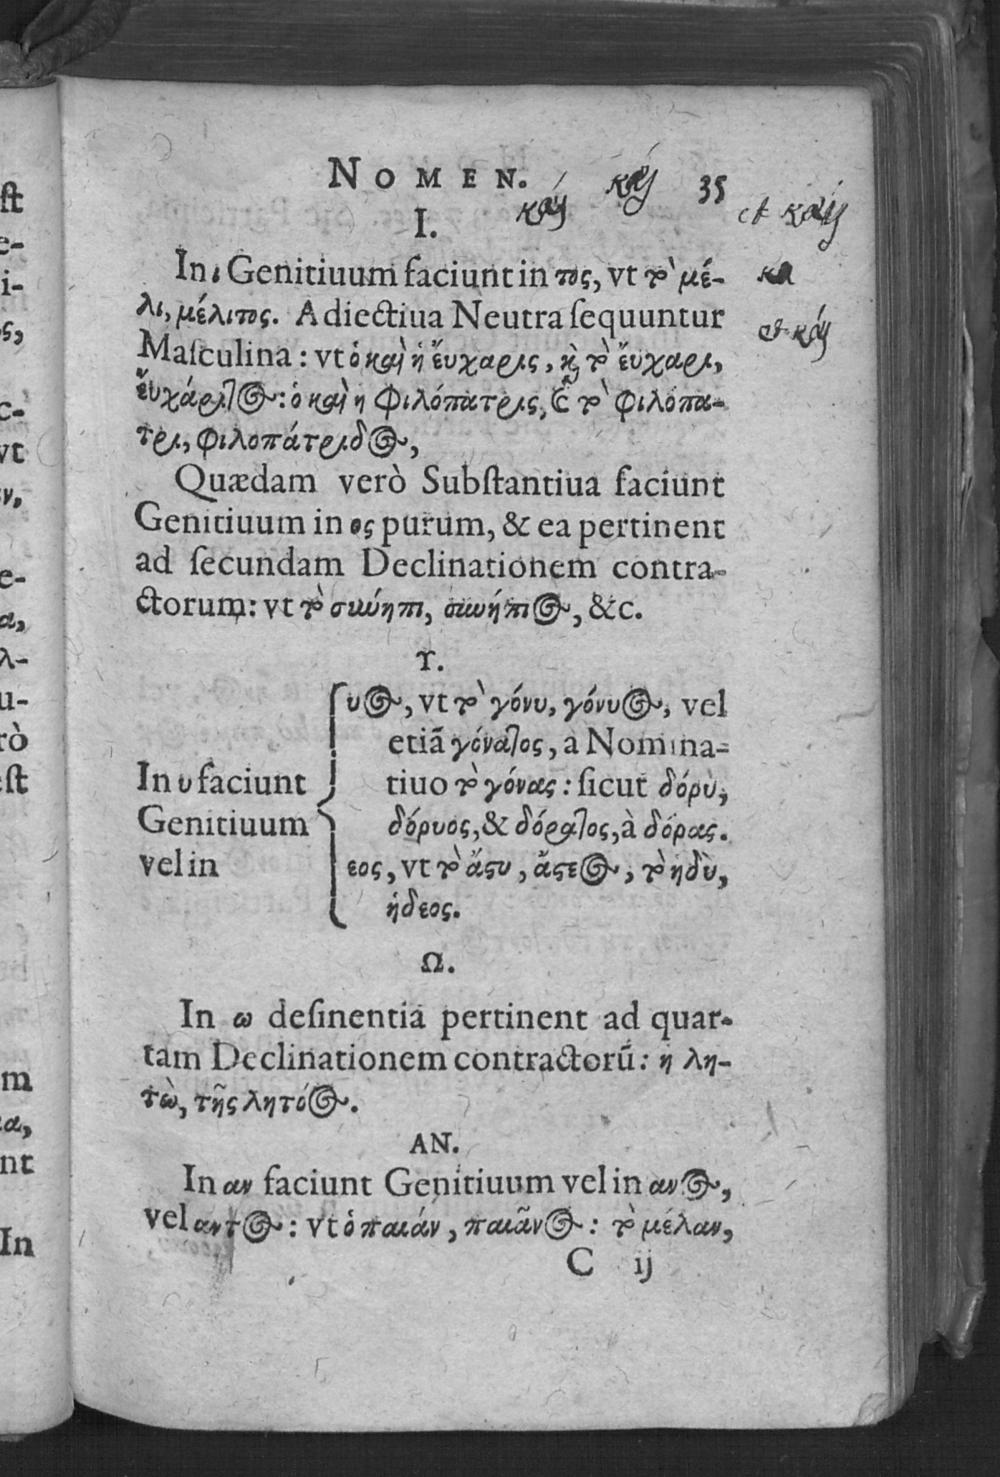 NOMEN. 35
I.
In ι Genitiuum faciunt in τος, vt τὸ μέ-
λι, μέλιτος. Adiectiua Neutra ſequuntur
Maſculina: vt ὁ καὶ ἡ ἔυχαρις, κὶ τὸ ἔυχαρι,
ἔυχάριτος: ὁ καὶ η φιλόπατρις, & τὸ φιλόπα-
τρι, φιλοπάτριδος,
Quædam verò Subſtantiua faciunt
Genitiuum in ος purum, & ea pertinent
ad ſecundam Declinationem contra-
ctorum: vt τὸ σινήπι, σινήπιος, &c.
Υ.
In υ faciunt
Genitiuum
vel in
υος, vt τὸ γόνυ, γόνυος, vel
etiã γόνατος, a Nomina-
tiuo τὸ γόνας: ſicut δόρὺ,
δόρυος, & δόρατος, à δόρας.
εος, vt τὸ ἄςυ, ἄςεος, τὸ ηδὺ,
ἡδεος.
Ω.
In ω deſinentia pertinent ad quar-
tam Declinationem contractorũ: η λη-
τὼ, τῆς λητόος.
ΑΝ.
In αν faciunt Genitiuum vel in ανος,
vel αντος: vt ὁ παιάν, παιᾶνος: τὸ μέλαν,
C ij
και
και
et και
κα
et και